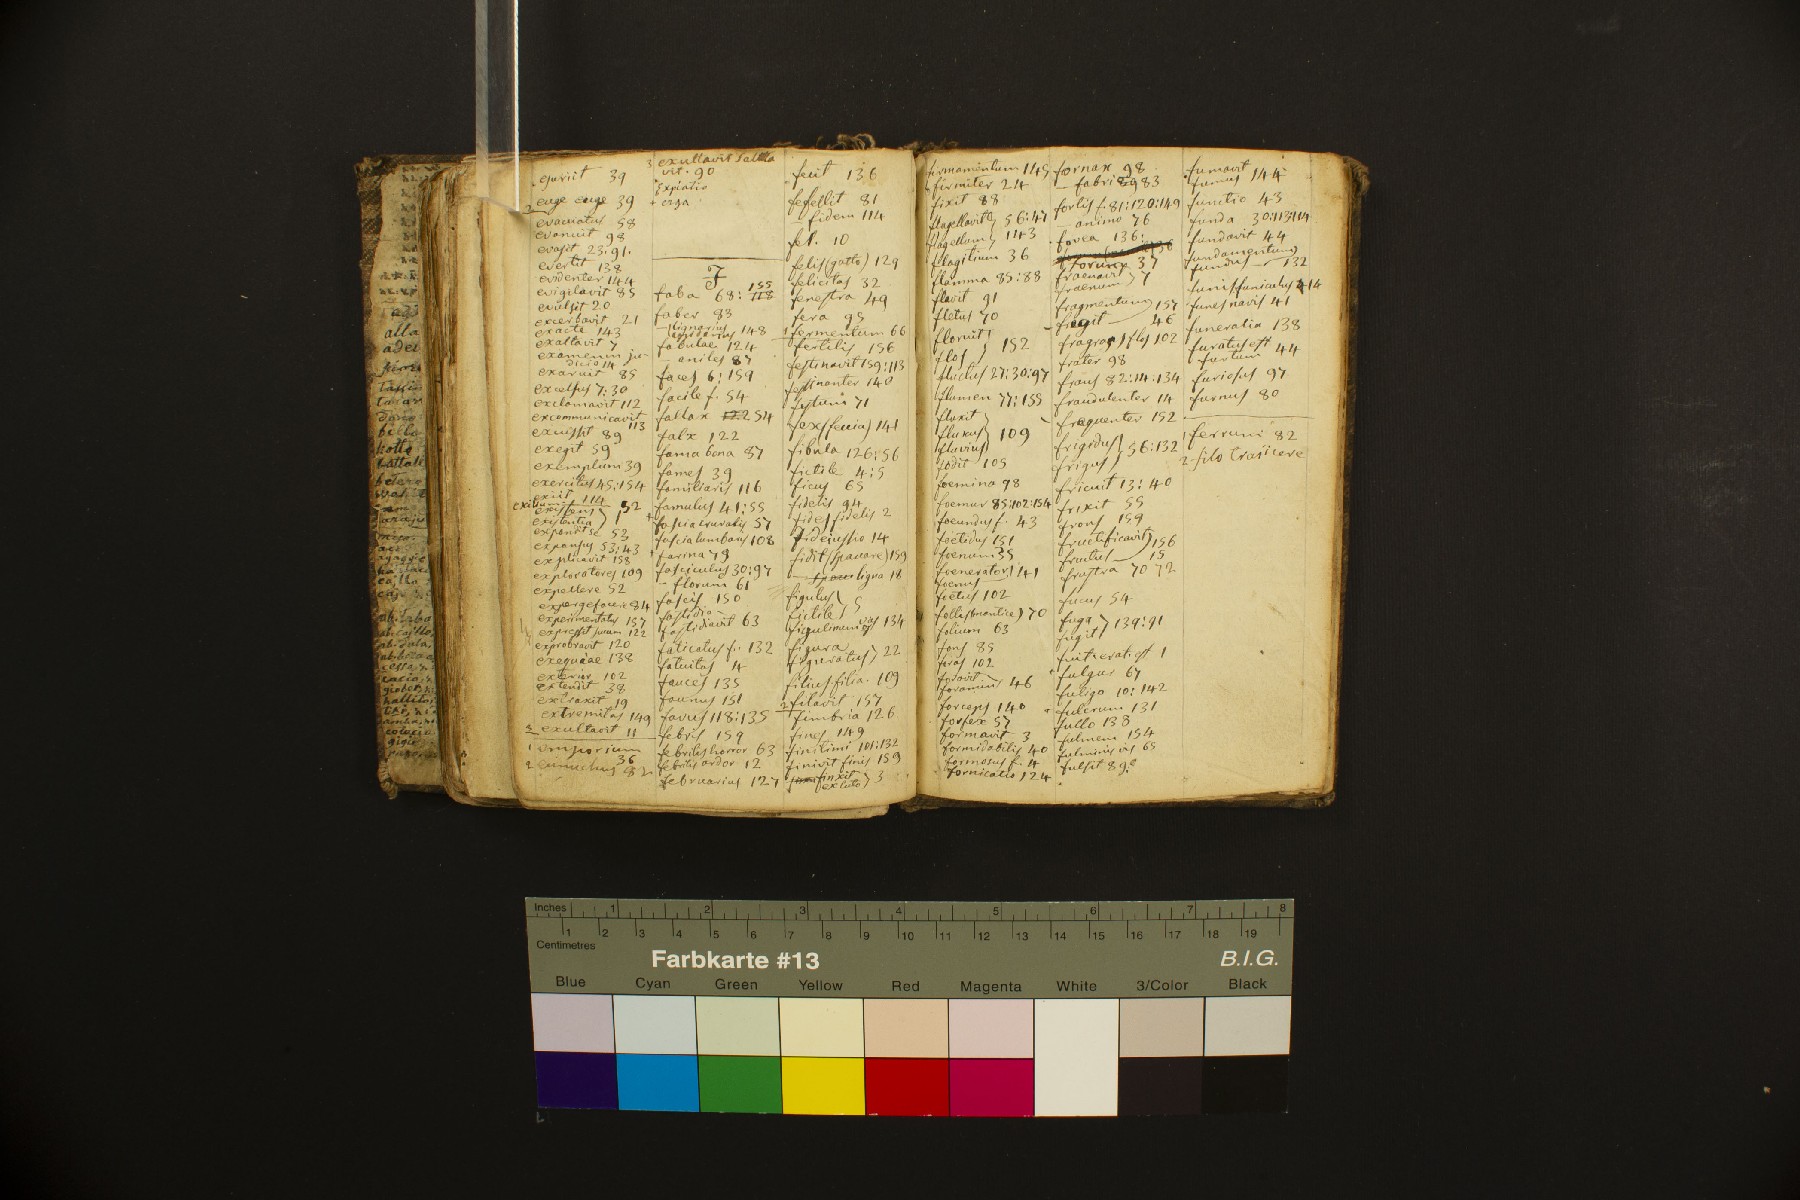 esuriit 39
euge euge 39
evacuatus 58
evanuit 98
evasit 23:91.
evertit 138
evidenter 144
evigilavit 85
evulsit 20
excerbavit 21
exacte 143
exaltavit 7
examenum ju-
dicio 14
exaruit 85
excelsus 7:30
exclamavit 112
excommunicavit
113
excussit 89
exegit 59
exemplum 39
exercitus 45:154
exiit 114
existens
existentia } 52
exponit se 53
expansus 53:43
explicavit 158
exploratores 109
expellere 52
expergefacere 84
experimentatus 157
expressit suum 122
exprobravit 120
exequiae 138
exterior 102
extendit 38
extraxit 19
extremitas 149
3 exultavit 11
1 emporium
36
2 eunuchus 82
3 exultavit salta
vit. 90
expiatio
erga
F
faba 68: 118 155
faber 83
lignarius 148
fabulae 124
- aniles 87
faces 6:159
facile f. 54
fallax 54
falx 122
fama bona 87
fames 39
familiaris 116
famulus 41:55
fascia cruralis 57
fascia lumbaris 108
farina 79
fasciculus 30:97
- florum 61
fascis 150
fastidio
fastidiavit 63
faticatus f. 132
fatuitas 4
fauces 135
faunus 151
favus 118:135
febris 159
febrilis horror 63
febrilis ardor 12
februarius 127
fecit 136
fefellit 81
- fidem 114
fel. 10
felis (gatto) 129
felicitas 32
fenestra 49
fera 95
1 fermentum 66
fertilis 156
festinavit 159:113
festinanter 140
festum 71
fex (feccia) 141
fibula 126:56
fictile 4:5
ficus 65
fidelis 94
fides fidelis 2
fideiussio 14
fidit (spaccare) 159
ligna 18
figulus
fictile } 5
figulinum vas 134
figura
figuratus } 22
filius filia 109
2 filavit 157
fimbria 126
fines 149
finitimi 101:132
finivit finis 159
finxit
ex luto } 3
firmamentum 145
firmiter 24
fixit 88
flagellavit 56:47
flagellum 143
flagitium 36
flamma 85:88
flavit 91
fletus 70
floruit
flos } 152
fluctus 27:30:97
flumen 77:155
fluxit
fluxus
fluvius } 109
fodit 105
foemina 98
foemur 85:102:154
foecundus f. 43
foetidus 151
foenum 35
foenerator
foenus } 141
foetus 102
follis (mantice) 70
folium 63
fons 85
foras 102
foravit
foramini 46
forceps 140
forfex 57
formavit 3
formidabilis 40
formosus f. 4
fornicatio 124
fornax 98
- fabri 83
fortis f. 81:120:149
- animo 76
fovea 136:
forum 37
fraenavit
fraenum } 7
fragmentum 157
fregit 46
fragro flos 102
frater 98
fraus 82:14:134
fraudulenter 14
frequenter 152
frigidus
frigus } 56:132
fricuit 13:40
frixit 55
frons 159
fructificavit
fructus } 156
15
frustra 70 72
fucus 54
fuga
fugit } 139:91
fuit: erat: est 1
fulgur 67
fuligo 10:142
fulcrum 131
fullo 138
fulmen 154
fulminis vis 65
fulsit 89:
fumavit
fumus 144
functio 43
funda 30:113:114
fundavit 44
fundamentum
fundus 132
funis funiculus 114
funes navis 41
funeralia 138
furatus est
furtum 44
furiosus 97
furnus 80
1 ferrum 82
2 filo trajicere
Inches 1 2 3 4 5 6 7 8
1 2 3 4 5 6 7 8 9 10 11 12 13 14 15 16 17 18 19
Centimetres
Farbkarte #13
B.I.G.
Blue Cyan Green Yellow Red Magenta White 3/Color Black